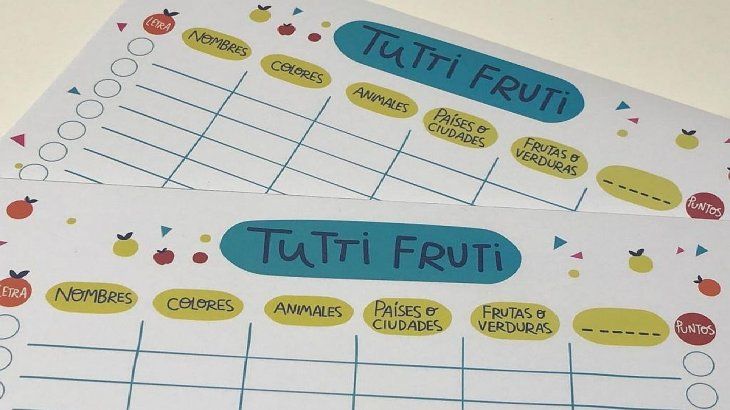 TUTTI FRUTI
LETRA NOMBRES COLORES ANIMALES PAÍSES O CIUDADES FRUTAS O VERDURAS ______ PUNTOS
TUTTI FRUTI
LETRA NOMBRES COLORES ANIMALES PAÍSES O CIUDADES FRUTAS O VERDURAS ______ PUNTOS